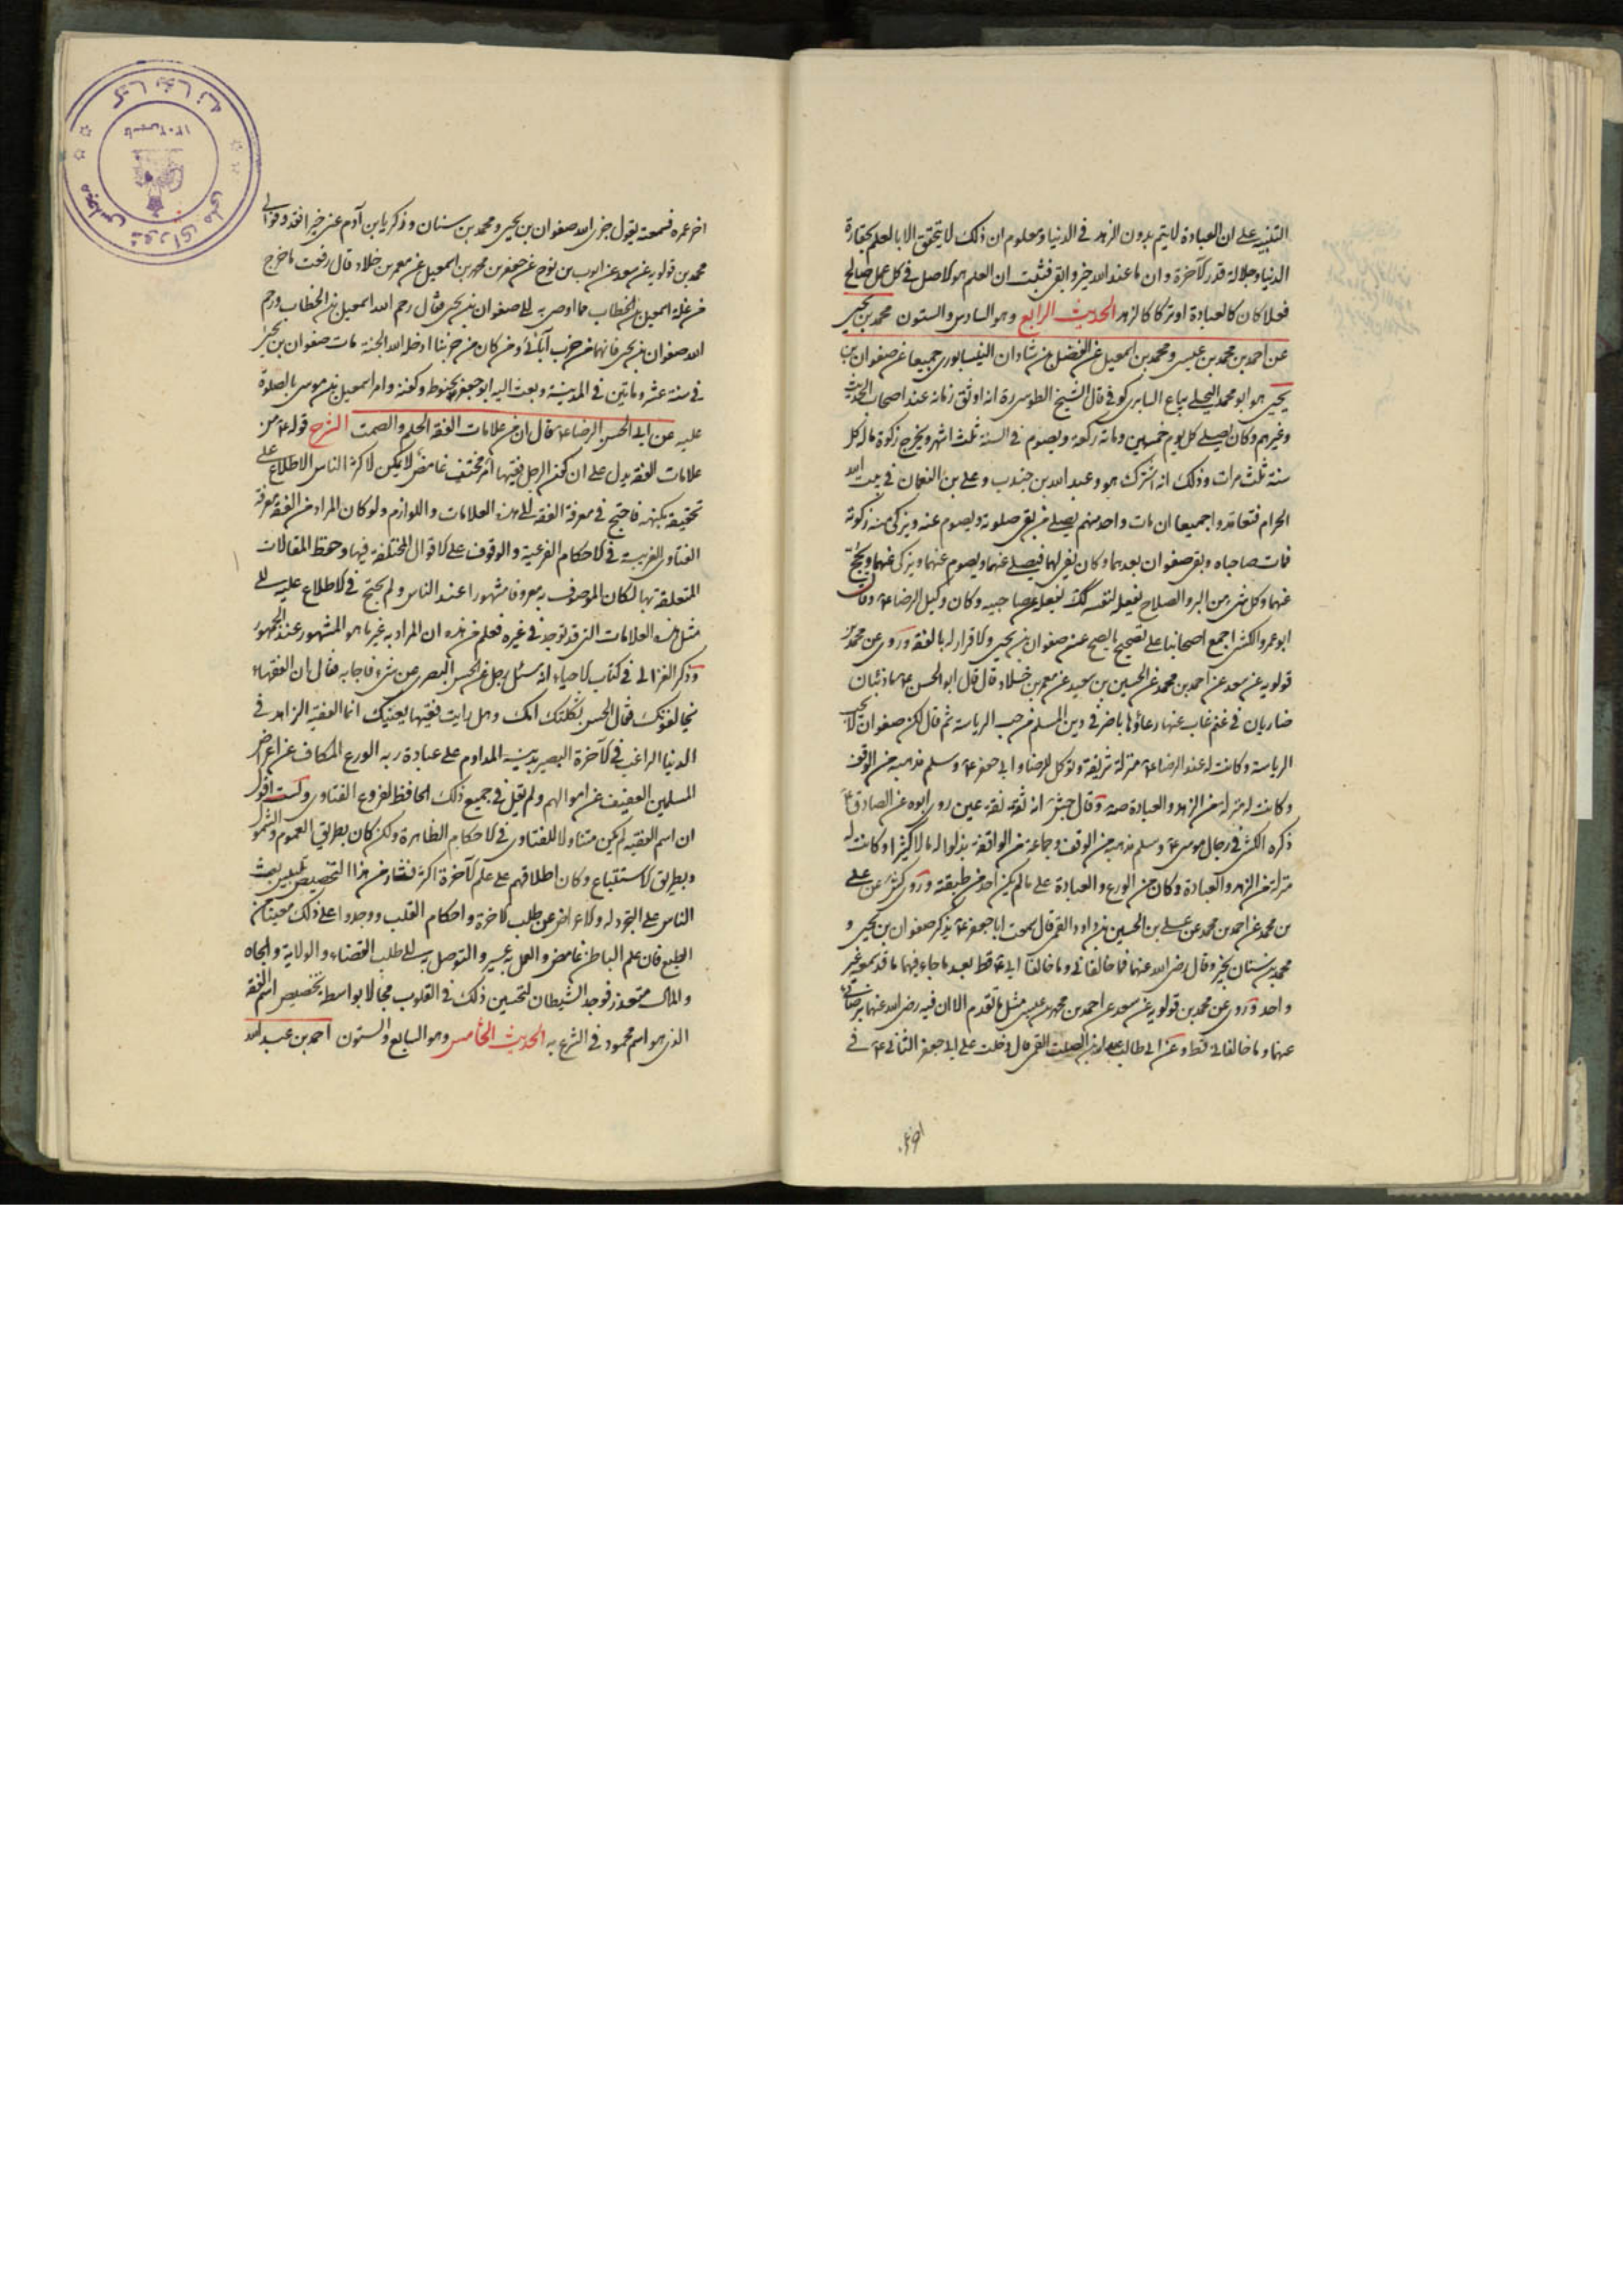 التنبيه على ان العبادة لا يتم بدون الزهد فى الدنيا ومعلوم ان ذلك لا يتحقق الا بالعلم بحقارة
الدنيا وجلالة قدر الآخرة وان ما عند الله خير وابقى فثبت ان العلم هو الاصل فى كل عمل صالح
فعلا كان كالعبادة او تركا كالزهد الحديث الرابع وهو السادس والستون محمد بن يحيى
عن احمد بن محمد بن عيسى ومحمد بن اسمعيل عن الفضل بن شاذان النيسابورى جميعا عن صفوان بن
يحيى هو ابو محمد البجلى بياع السابرى كوفى قال الشيخ الطوسى ره انه اوثق زمانه عند اصحاب الحديث
وغيرهم وكان يصلى كل يوم خمسين ومائة ركعة ويصوم فى السنة ثلث اشهر ويخرج زكوة ماله كل
سنة ثلث مرات وذلك انه اشترك هو وعبد الله بن جندب وعلى بن النعمان فى بيت الله
الحرام فتعاقدوا جميعا ان مات واحد منهم يصلى من بقى صلوته ويصوم عنه ويزكى عنه زكوته
فمات صاحباه وبقى صفوان بعدهما وكان يفى لهما فيصلى عنهما ويصوم عنهما ويزكى عنهما ويحج
عنهما وكل شىء من البر والصلاح يفعله لنفسه كك يفعله عن صاحبيه وكان وكيل الرضا ع وقال
ابو عمرو الكشى اجمع اصحابنا على تصحيح ما يصح عن صفوان بن يحيى والاقرار له بالفقه وروى عن محمد بن
قولويه عن سعد عن احمد بن محمد عن الحسين بن سعيد عن معمر بن خلاد قال قال ابو الحسن ع ما ذئبان
ضاريان فى غنم غاب عنها رعاؤها باضر فى دين المسلم من حب الرياسة ثم قال لكن صفوان لا يحب
الرياسة وكانت له عند الرضا ع منزلة شريفة وتوكل للرضا وابى جعفر ع وسلم مذهبه من الوقف
وكانت له منزلة من الزهد والعبادة صه وقال جش انه ثقة ثقة عين روى ابوه عن الصادق ع
ذكره الكشى فى رجال موسى ع وسلم مذهبه من الوقف وجماعة من الواقفة بذلوا له مالا كثيرا وكانت له
منزلة من الزهد والعبادة وكان من الورع والعبادة على ما لم يكن احد من طبقته وروى كش عن على
بن محمد عن احمد بن محمد عن على بن الحسين بن داود القمى قال سمعت ابا جعفر ع يذكر صفوان بن يحيى و
محمد بن سنان بخير وقال رضى الله عنهما فما خالفانى وما خالفا ابى ع قط بعد ما جاء فيهما ما قد سمعه غير
واحد وروى عن محمد بن قولويه عن سعد عن احمد بن محمد بن عيسى مثل ما تقدم الا ان فيه رضى الله عنهما برضائى
عنهما وما خالفانى قط وعن ابى طالب عبد الله بن الصلت القمى قال دخلت على ابى جعفر الثانى ع فى
اخر عمره
اخر عمره فسمعته يقول جزى الله صفوان بن يحيى ومحمد بن سنان وزكريا بن آدم عنى خيرا فقد وفوا لى
محمد بن قولويه عن سعد عن ايوب بن نوح عن جعفر بن محمد بن اسمعيل عن معمر بن خلاد قال رفعت ما خرج
من غلة اسمعيل بن الخطاب مما اوصى به الى صفوان بن يحيى فقال رحم الله اسمعيل بن الخطاب ورحم
الله صفوان بن يحيى فانهما من حزب آبائى ومن كان من حزبنا ادخله الله الجنة مات صفوان بن يحيى
فى سنة عشر وماتين فى المدينة وبعث اليه ابو جعفر بحنوط وكفنه وامر اسمعيل بن موسى بالصلوة
عليه عن ابى الحسن الرضا ع قال ان من علامات الفقه الحلم والصمت الشرح قوله ع من
علامات الفقه يدل على ان كون الرجل فقيها امر مختف غامض لا يمكن لاكثر الناس الاطلاع على
تحقيقه بكنهه فاحتج فى معرفة الفقه الى هذه العلامات واللوازم ولو كان المراد من الفقه معرفة
الفتاوى الغريبة فى الاحكام الفرعية والوقوف على الاقوال المختلفة فيها وحفظ المقالات
المتعلقة بها لكان الموصوف به معروفا مشهورا عند الناس ولم يحتج فى الاطلاع عليه الى
مثل هذه العلامات التى قد توجد فى غيره فعلم من هذه ان المراد به غير ما هو المشهور عند الجمهور
وذكر الغزالى فى كتاب الاحياء انه سئل رجل عن الحسن البصرى عن شىء فاجابه فقال ان الفقهاء
يخالفونك فقال الحسن ثكلتك امك وهل رايت فقيها بعينيك انما الفقيه الزاهد فى
الدنيا الراغب فى الآخرة البصير بدينه المداوم على عبادة ربه الورع الكاف عن اعراض
المسلمين العفيف عن اموالهم ولم يقل فى جميع ذلك الحافظ لفروع الفتاوى ولست اقول
ان اسم الفقيه لم يكن متناولا للفتاوى فى الاحكام الظاهرة ولكن كان بطريق العموم والشمول
وبطريق الاستتباع وكان اطلاقهم على علم الآخرة اكثر فنشاء من هذا التخصيص تلبيس بعث
الناس على التجرد له والاعراض عن طلب الاخرة واحكام القلب ووجدوا على ذلك معينا من
الطبع فان علم الباطن غامض والعمل به عسير والتوصل به الى طلب القضاء والولاية والجاه
والمال متعذر فوجد الشيطان لتحسين ذلك فى القلوب مجالا بواسطة تخصيص اسم الفقه
الذى هو اسم محمود فى الشرع به الحديث الخامس وهو السابع والستون احمد بن عبد الله
كتابخانه مجلس شوراى ملى